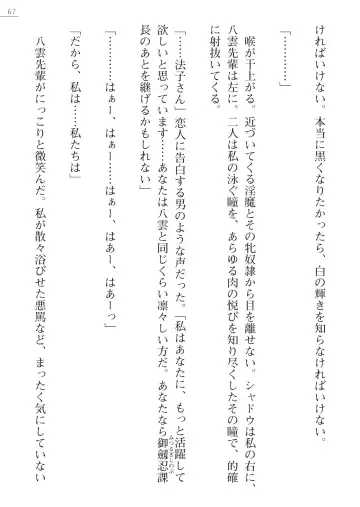 67
ければいけない。本当に黒くなりたかったら、白の輝きを知らなければいけない。
「…………」
喉が干上がる。近づいてくる淫魔とその牝奴隷から目を離せない。シャドウは私の右に、
八雲先輩は左に。二人は私の泳ぐ瞳を、あらゆる肉の悦びを知り尽くしたその瞳で、的確
に射抜いてくる。
「……法子さん」恋人に告白する男のような声だった。「私はあなたに、もっと活躍して
欲しいと思っています……あなたは八雲と同じくらい凛々しい方だ。あなたなら御剱忍課
みつるぎしのぶ
長のあとを継げるかもしれない」
「…………はぁー、はぁー、はあー、はあーっ」
「だから、私は……私たちは」
八雲先輩がにっこりと微笑んだ。私が散々浴びせた悪罵など、まったく気にしていない